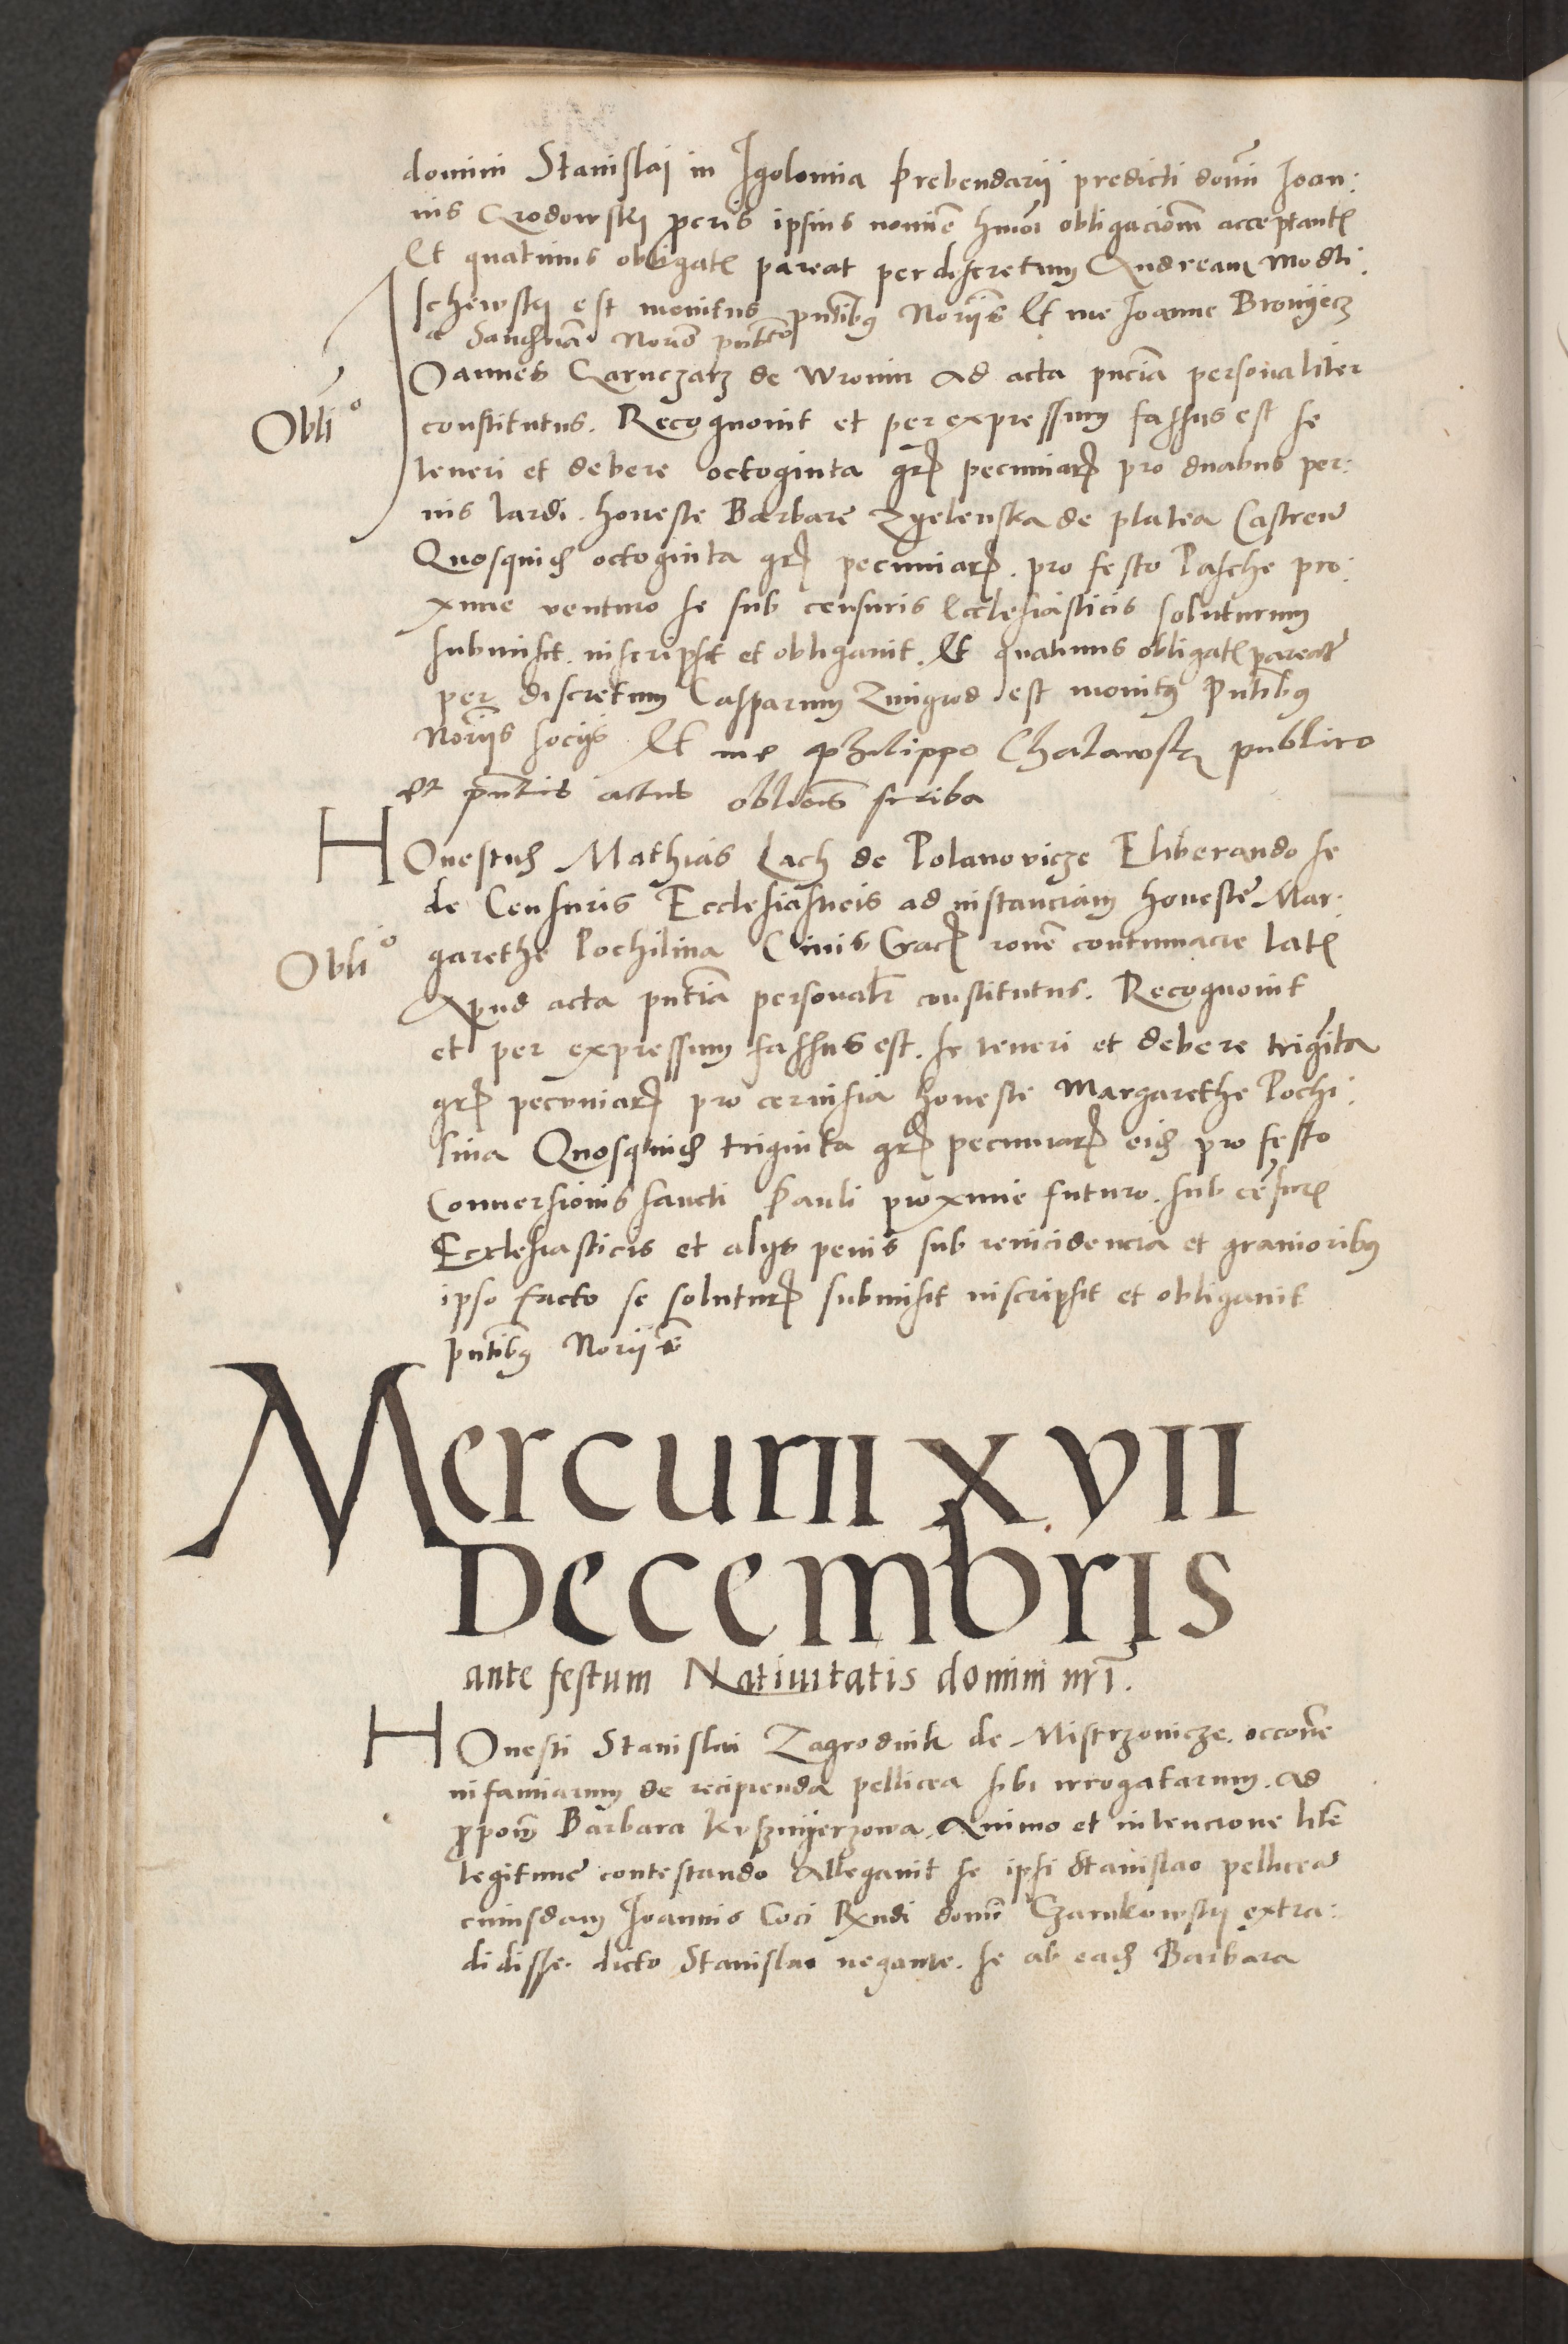 domini Stanislaj in Igolomia Prebendarii predicti domi Joan:
nis Grodowskij pcris ipsius nomine hmoi obligacionem acceptantꝭ
Et quatinus obligatꝭ pareat per discretum Andream Modli:
schewskj est monitus pntibꝰ Noriis Et me Joanne Bronijecz
a Noro
IOannes Garnczarz de Wronin Ad acta pncia personaliter
Obliº
constitutus. Recognovit et per expressum fassus est se
teneri et debere octoginta grꝭ pecuniarꝭ pro duabus per:
nis lardi. honeste Barbare Zyelenska de platea Castren
Quosquid octoginta grꝭ pecuniarꝭ. pro festo Pasche pro:
xime venturo se sub censuris Ecclesiasticis soluturum
submisit. inscripsit et obligavit. Et quatinus obligatꝭ pareat
per discretum Casparum Zmigrod est monitꝰ Pntibꝰ
Noriis socijs Et me Philippo Chalawskj publico
et pntis actus obliois scriba
HOnestus Mathias Lach de Polanovicze Eliberando se
de Censuris Ecclesiasticis ad instanciam honeste Mar:
Obliº
garethe Pochilina Civis Cracꝭ rone contumacie latꝭ
Apud acta pntia personalr constitutus. Recognovit
et per expressum fassus est. se teneri et debere triginta
grꝭ pecuniarꝭ pro cervisia honeste Margarethe Pochi:
lina Quosquid triginta grꝭ pecuniarꝭ eid pro festo
Conversionis sancti Pauli proxime futuro. sub censurꝭ
Ecclesiasticis et alijs penis sub reincidencia et gravioribꝰ
ipso facto se soluturꝭ submisit inscripsit et obligavit
pntibꝰ Noriis
Mercurii xvii
Decembris
ante festum Nativitatis domini nri.
HOnesti Stanislai Zagrodnik de Mistrzovicze. occone
infamiarum de recipienda pellicea sibi irrogatarum. Ad
ppom Barbara Kusznijerzowa. Animo et intencione lite
legitime contestando Allegavit se ipsi Stanislao pellicea
cuiusdam Joannis Coci Rndi domi Czarnkowskij extra:
didisse. dicto Stanislao negante. se ab ead Barbara